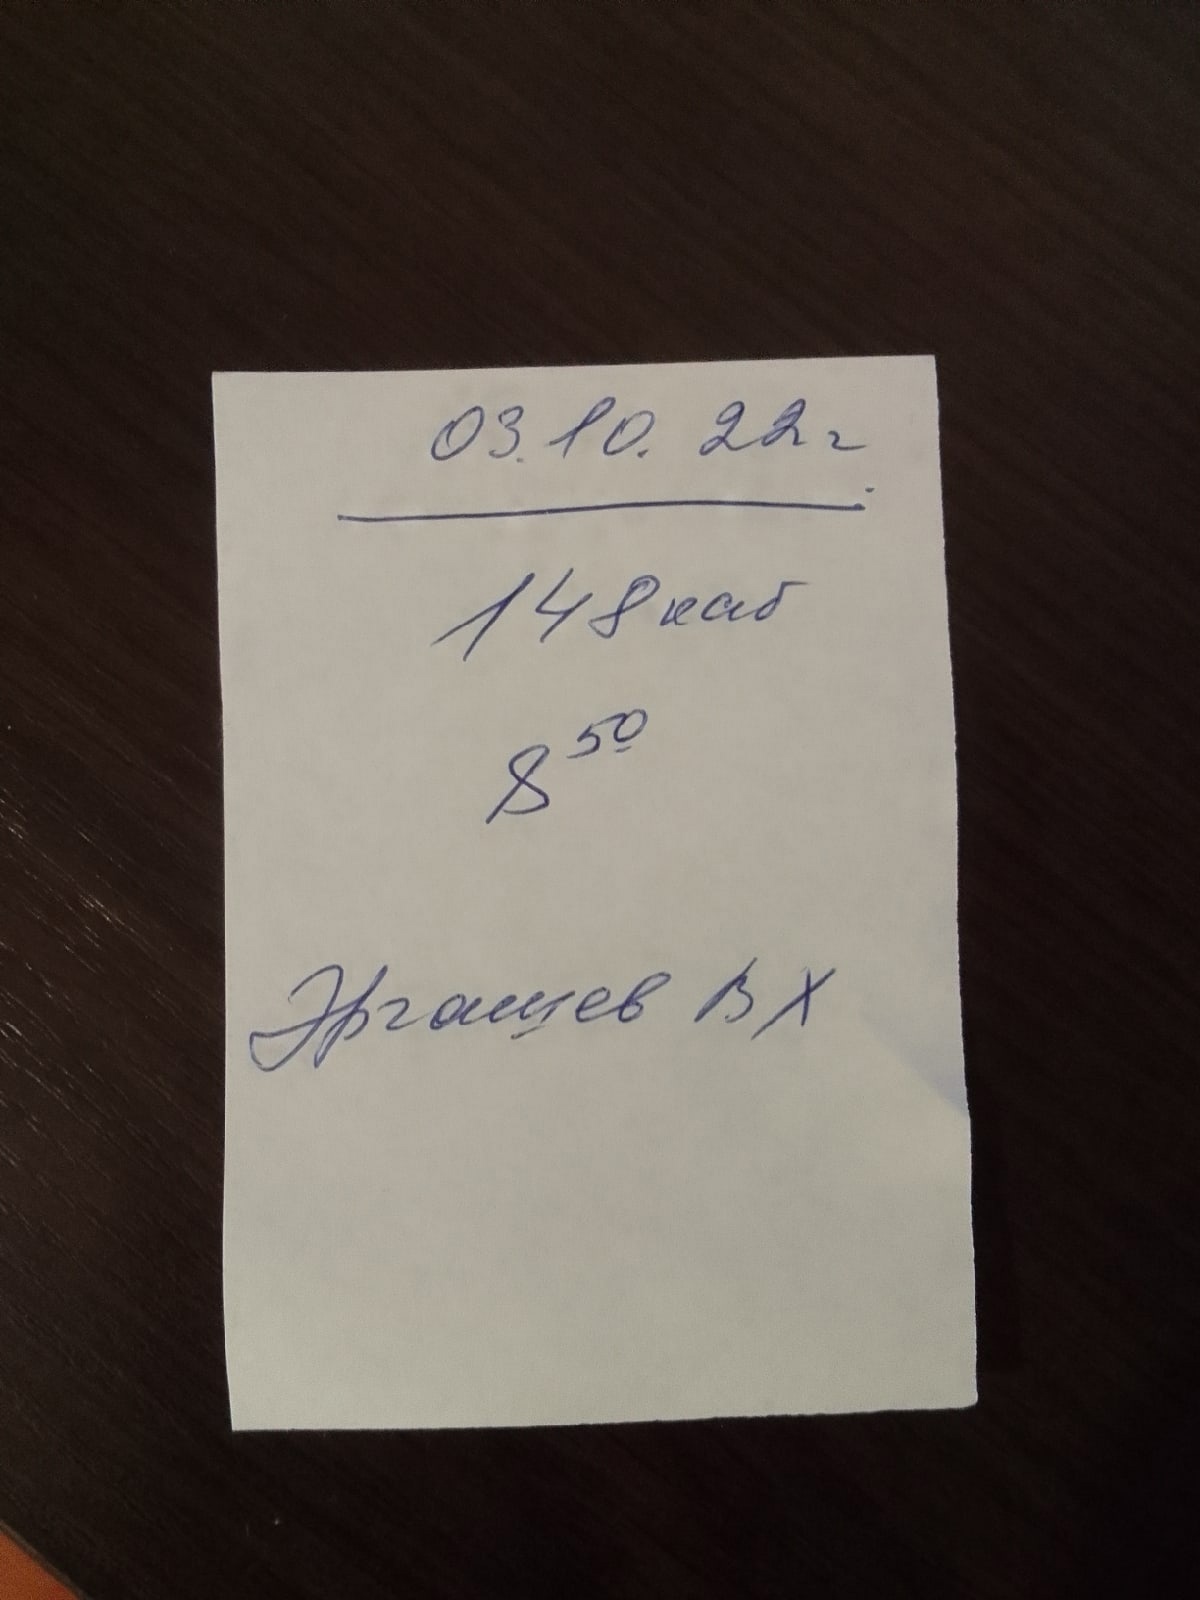 03.10.22г
148 каб
8 50
Эргашев В Х